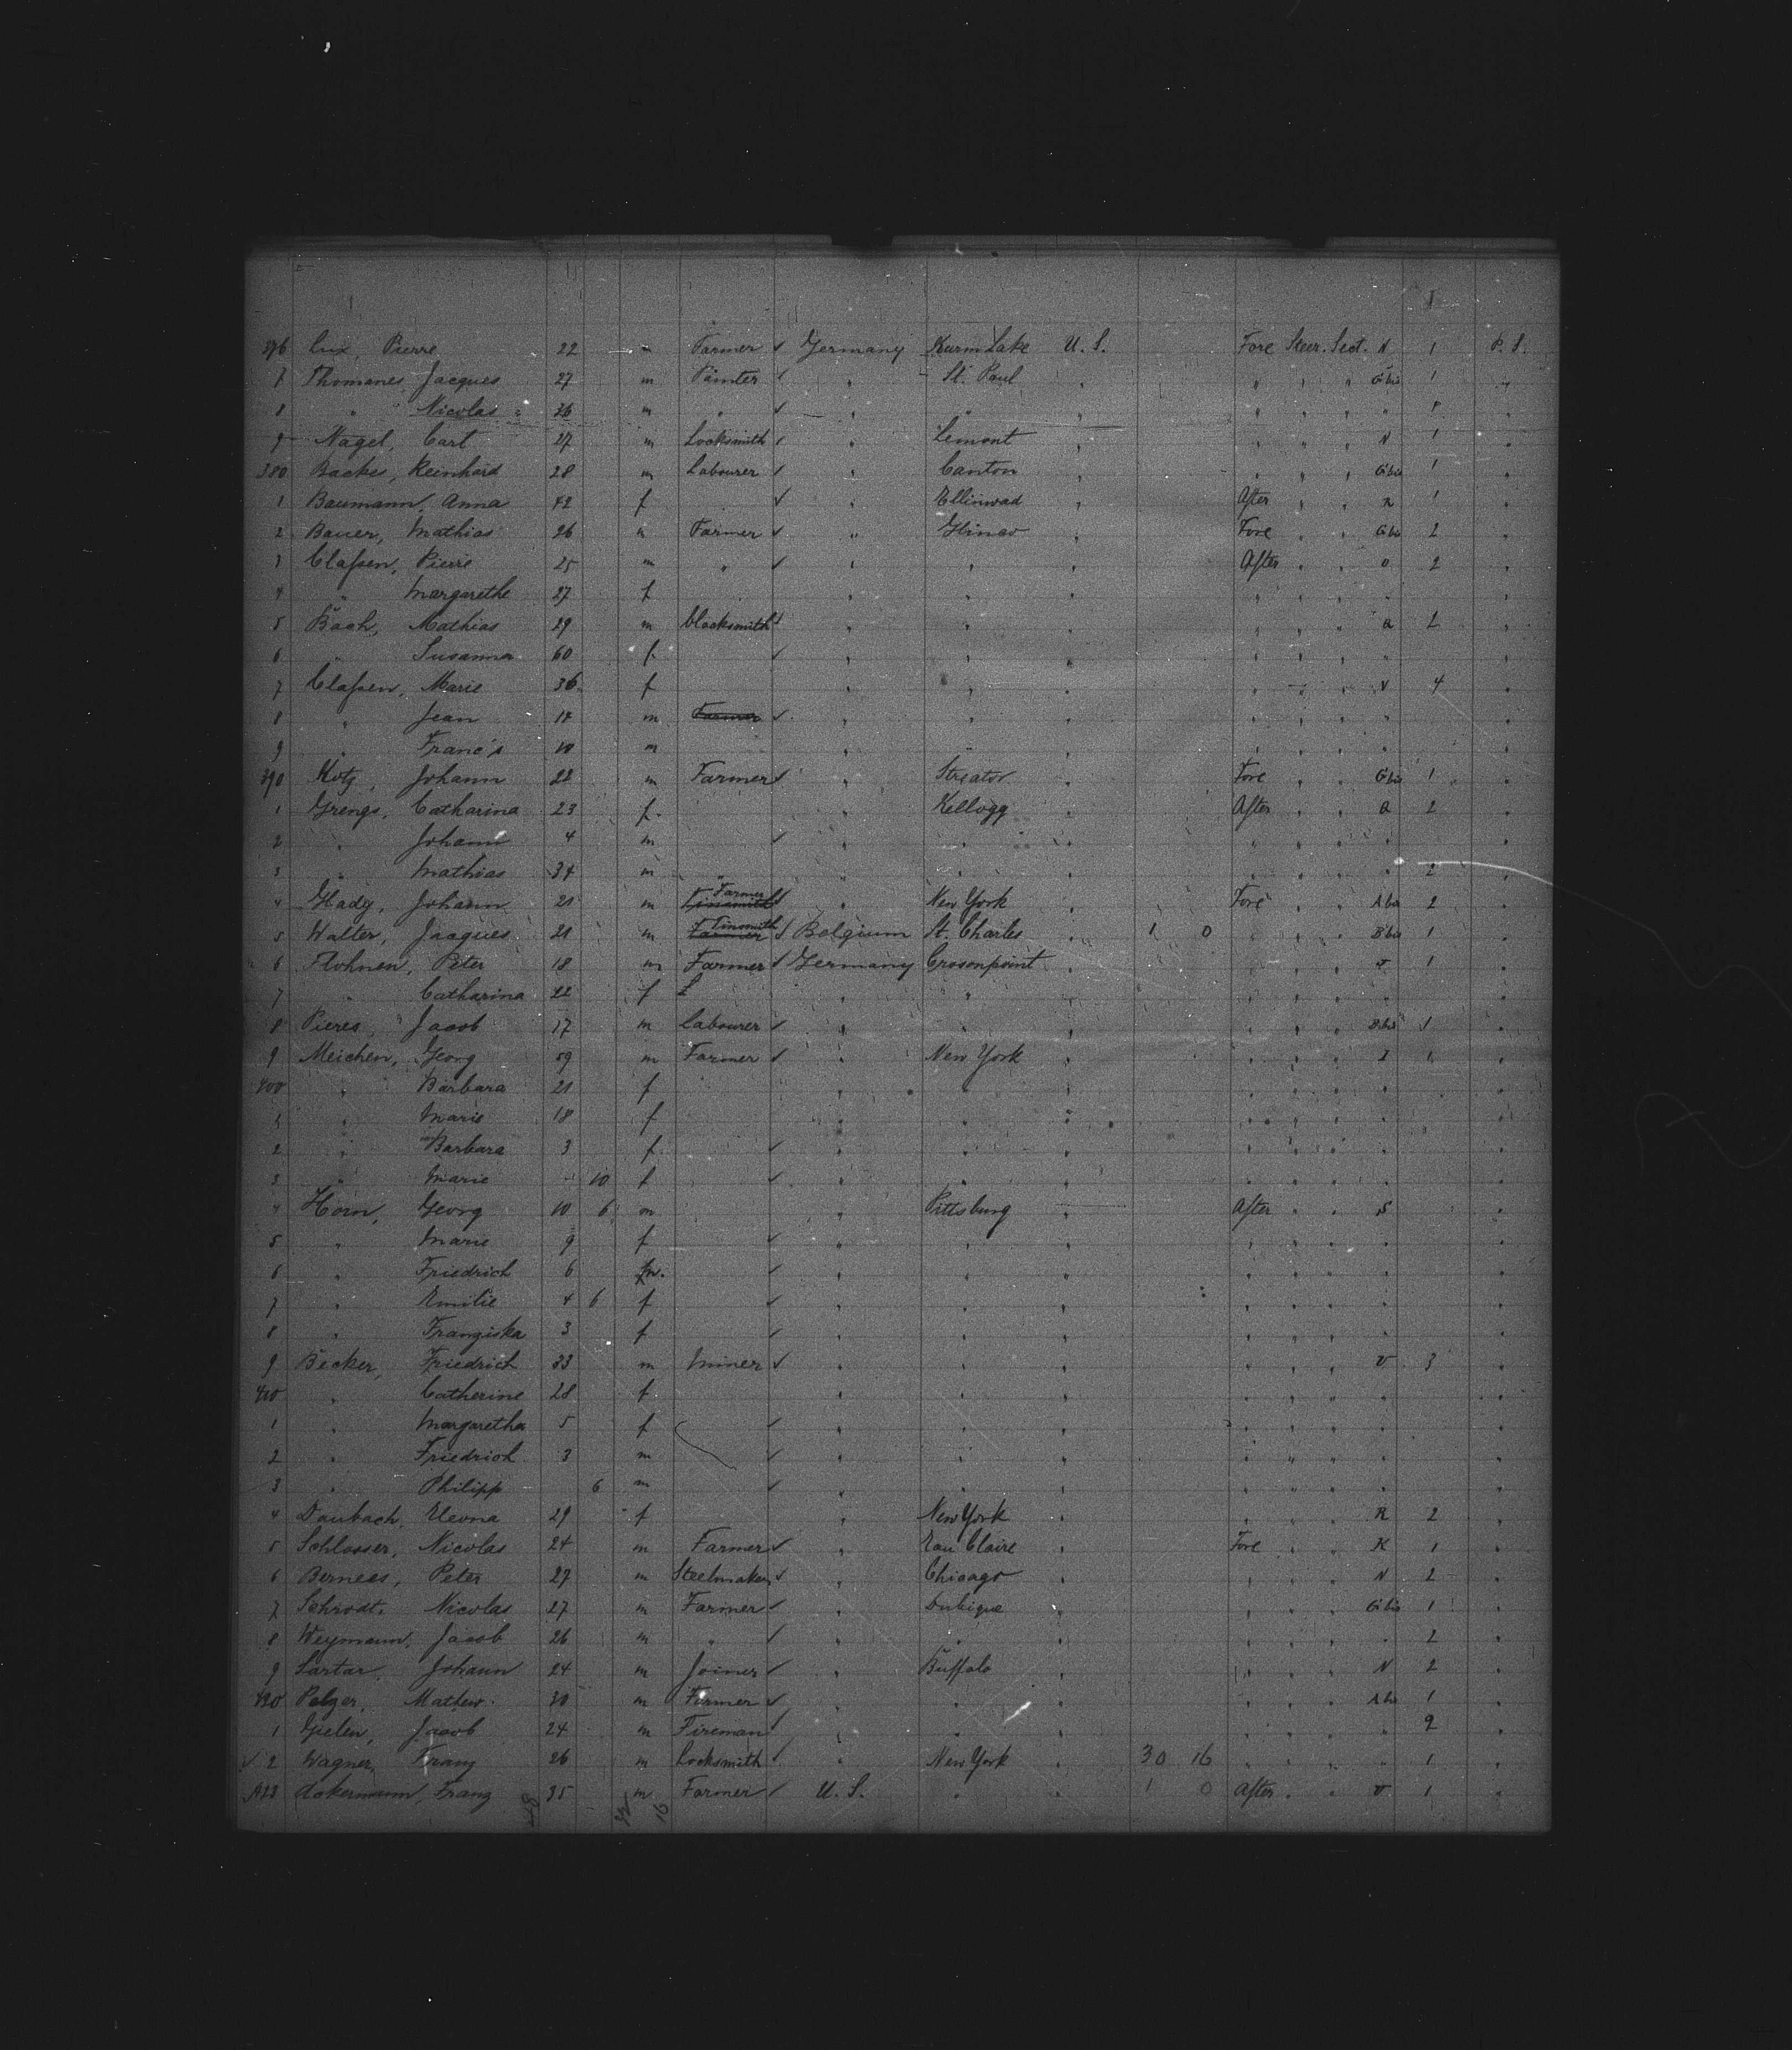 376 Lux, Pierre 22 m Farmer ✓ Germany Kurm Lake U. S. Fore Steer. Sect. N 1 P. S.
7 Thomanes Jacques 27 m Painter ✓ " St. Paul " " " " G bis 1 "
8 " Nicolas 26 m " ✓ " " " " " " " 1 "
9 Nagel, Carl 27 m Locksmith ✓ " Lemont " " " " N 1 "
380 Backes, Reinhard 28 m Labourer ✓ " Canton " " " " G bis 1 "
1 Baumann, Anna 42 f ✓ " Ellinwad " After " " R 1 "
2 Bauer, Mathias 26 m Farmer ✓ " " Fore " " G bis 2 "
3 Claßen, Pierre 25 m " ✓ " " " After " " O 2 "
4 " Margarethe 27 f " " " " " " " "
5 Bach, Mathias 29 m blacksmith ✓ " " " " " " Q 2 "
6 " Susanna 60 f ✓ " " " " " " " "
7 Claßen, Marie 36 f " " " " " " V 4 "
8 " Jean 14 m Farmer ✓ " " " " " " " "
9 " Franc's 10 m " " " " " " " "
390 Kotz, Johann 22 m Farmer ✓ " Streator " Fore " " G bis 1 "
1 Grengs, Catharina 23 f " Kellogg " After " " Q 2 "
2 " Johann 4 m ✓ " " " " " " " "
3 " Mathias 34 m " " " " " " " " 2 "
4 Glady, Johann 21 m Tinsmith Farmer ✓ " New York " Fore " " A bis 2 "
5 Walter, Jacques 21 m Farmer Tinsmith ✓ Belgium St. Charles " 1 0 " " " B bis 1 "
6 Flohnen, Peter 18 m Farmer ✓ Germany Crosonpoint " " " " J 1 "
7 " Catharina 22 f " " " " " " " "
8 Pieres, Jacob 17 m Labourer ✓ " " " " " " B bis 1 "
9 Meichen, Georg 59 m Farmer ✓ " New York " " " " I 1 "
400 " Barbara 21 f " " " " " " " "
1 " Marie 18 f " " " " " " " "
2 " Barbara 3 f ✓ " " " " " " " "
3 " Marie - 10 f ✓ " " " " " " " "
4 Horn, Georg 10 6 m " Pittsburg " After " " S "
5 " Marie 9 f ✓ " " " " " " " "
6 " Friedrich 6 m. ✓ " " " " " " " "
7 " Emilie 4 6 f ✓ " " " " " " " "
8 " Franziska 3 f ✓ " " " " " " " "
9 Becker, Friedrich 33 m Miner ✓ " " " " " " U 3 "
410 " Catherine 28 f " " " " " " " "
1 " Margaretha 5 f ✓ " " " " " " " "
2 " Friedrich 3 m ✓ " " " " " " " "
3 " Philipp 6 m ✓ " " " " " " " "
4 Daubach, Eleona 29 f " New York " " " " R 2 "
5 Schlosser, Nicolas 24 m Farmer ✓ " Eau Claire " Fore " " K 1 "
6 Bernees, Peter 27 m Steelmaker ✓ " Chicago " " " " N 2 "
7 Schrodt, Nicolas 27 m Farmer ✓ " Dubique " " " " G bis 1 "
8 Weymann, Jacob 26 m " ✓ " " " " " " " 2 "
9 Sartar, Johann 24 m Joiner ✓ " Buffalo " " " " N 2 "
420 Pelzer, Mathew 30 m Farmer ✓ " " " " " " A bis 1 "
1 Gielen, Jacob 24 m Fireman ✓ " " " " " " " 2 "
✓ 2 Wagner, Franz 26 m Locksmith ✓ " New York " 30 16 " " " " 1 "
423 Ackermann, Franz 35 m Farmer ✓ U. S. " " 1 0 After " " U 1 "
32 16